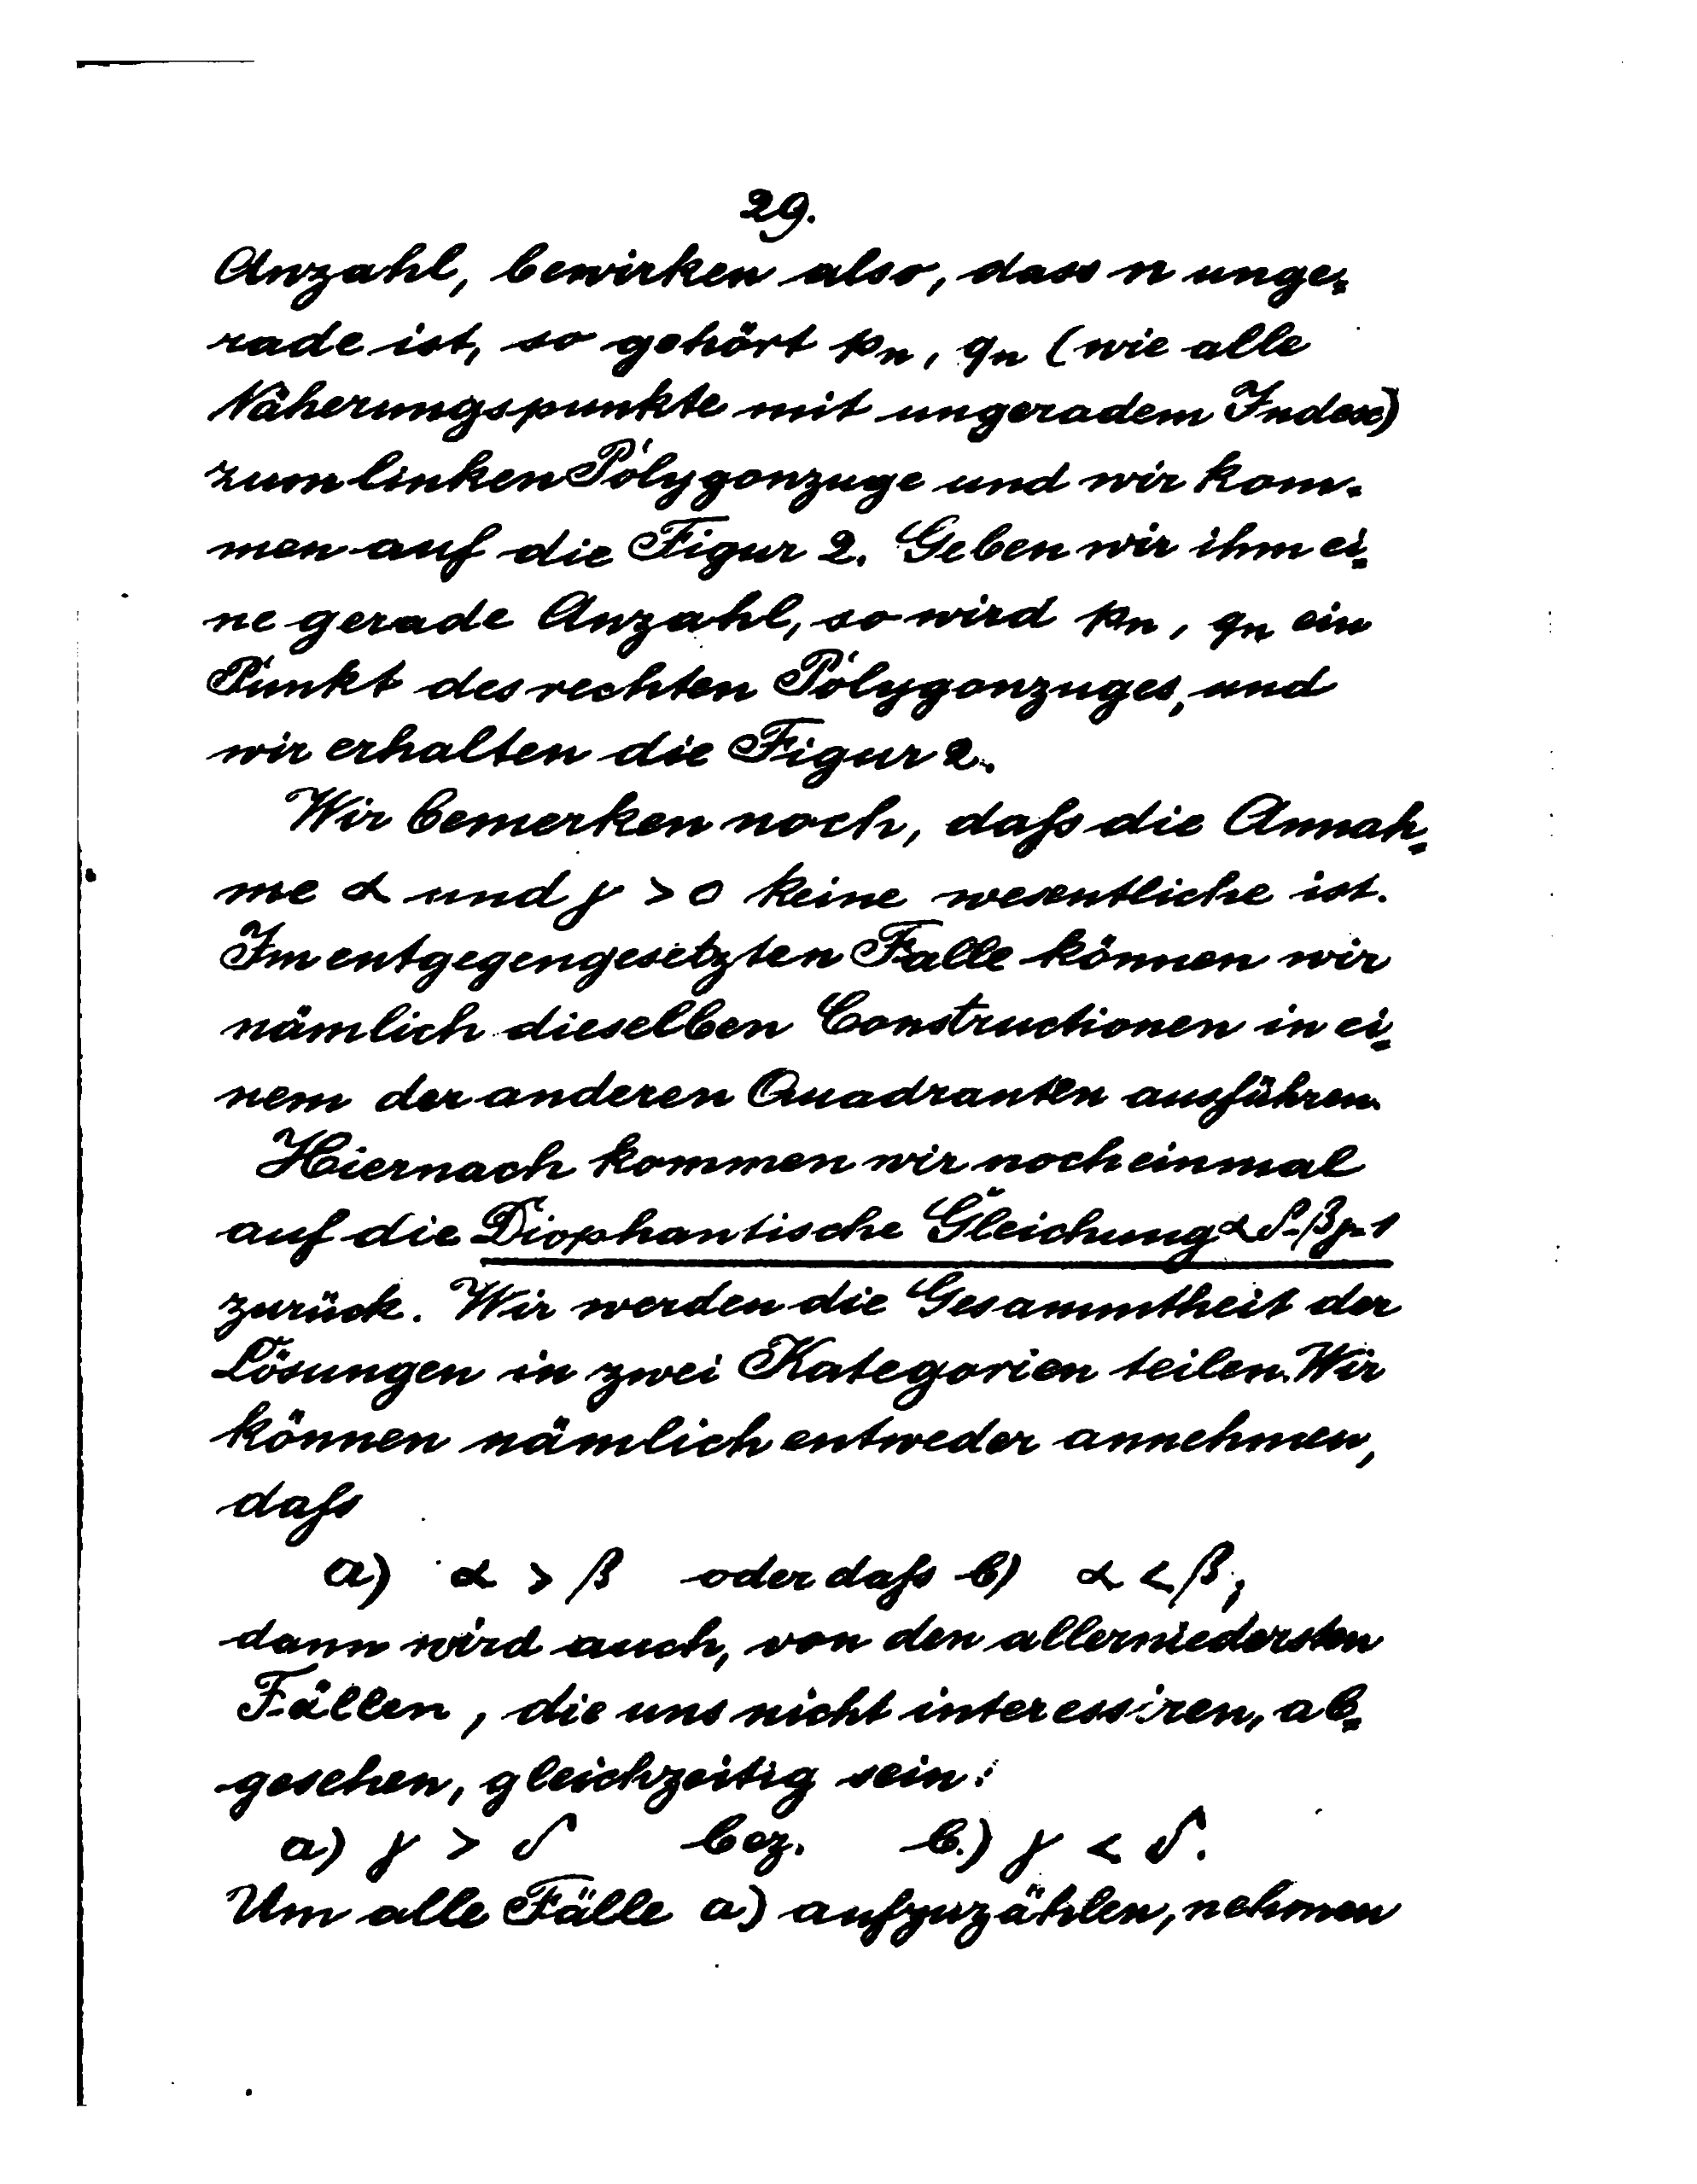 29.
Anzahl, bewirken also, dass n unge-
rade ist, so gehört pn, qn (wie alle
Näherungspunkte mit ungeradem Index)
zum linken Polygonzuge und wir kom-
men auf die Figur 2. Geben wir ihm ei-
ne gerade Anzahl, so wird pn, qn ein
Punkt des rechten Polygonzuges, und
wir erhalten die Figur 2.
Wir bemerken noch, daß die Annah-
me α und γ > 0 keine wesentliche ist.
Im entgegengesetzten Falle können wir
nämlich dieselben Constructionen in ei-
nem der anderen Quadranten ausführen.
Hiernach kommen wir noch einmal
auf die Diophantische Gleichung αδ-βγ=1
zurück. Wir werden die Gesammtheit der
Lösungen in zwei Kategorien teilen. Wir
können nämlich entweder annehmen,
daß
a) α > β oder daß b) α < β;
dann wird auch, von den allerniedersten
Fällen, die uns nicht interessiren, ab-
gesehen, gleichzeitig sein:
a) γ > δ bez. b.) γ < δ.
Um alle Fälle a) aufzuzählen, nehmen